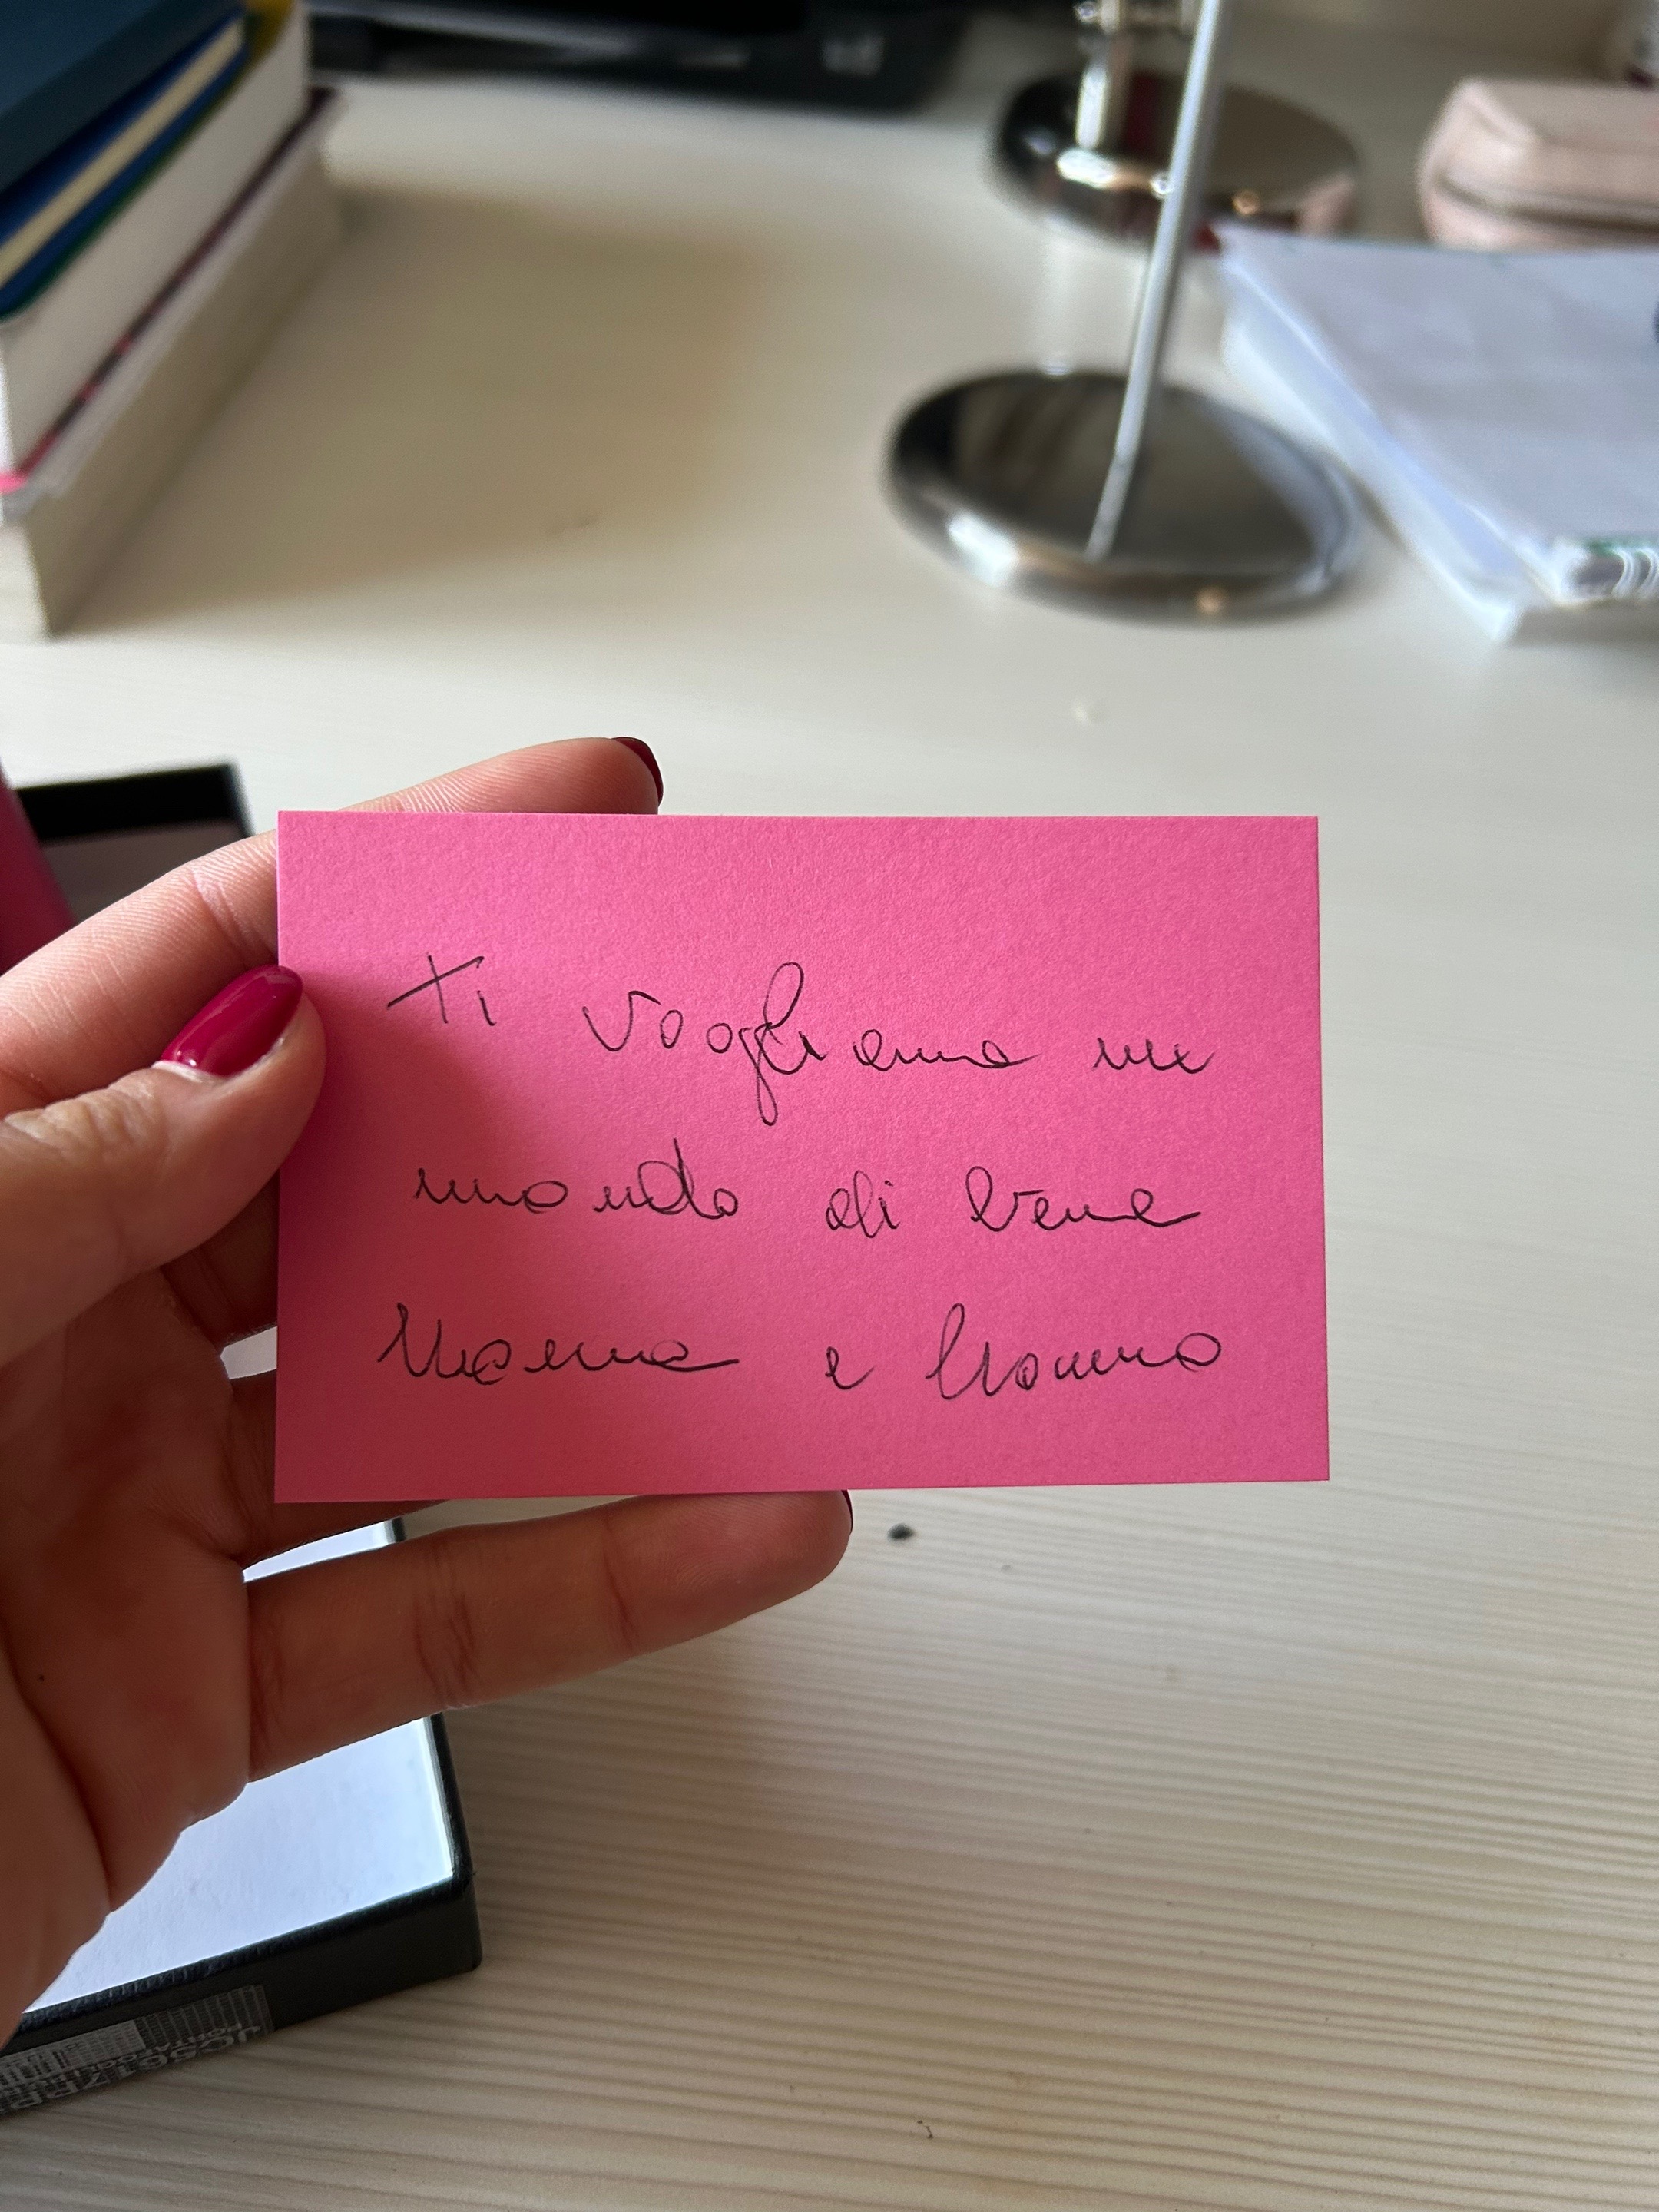 Ti vogliamo un
mondo di bene
Mamma e